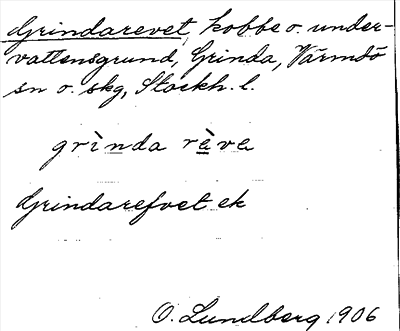 Grindarevet, kobbe o. under-
vattensgrund, Grinda, Värmdö
sn o. skg, Stockh. l.
grìnda rève
Grindarefvet ek
O. Lundberg 1906